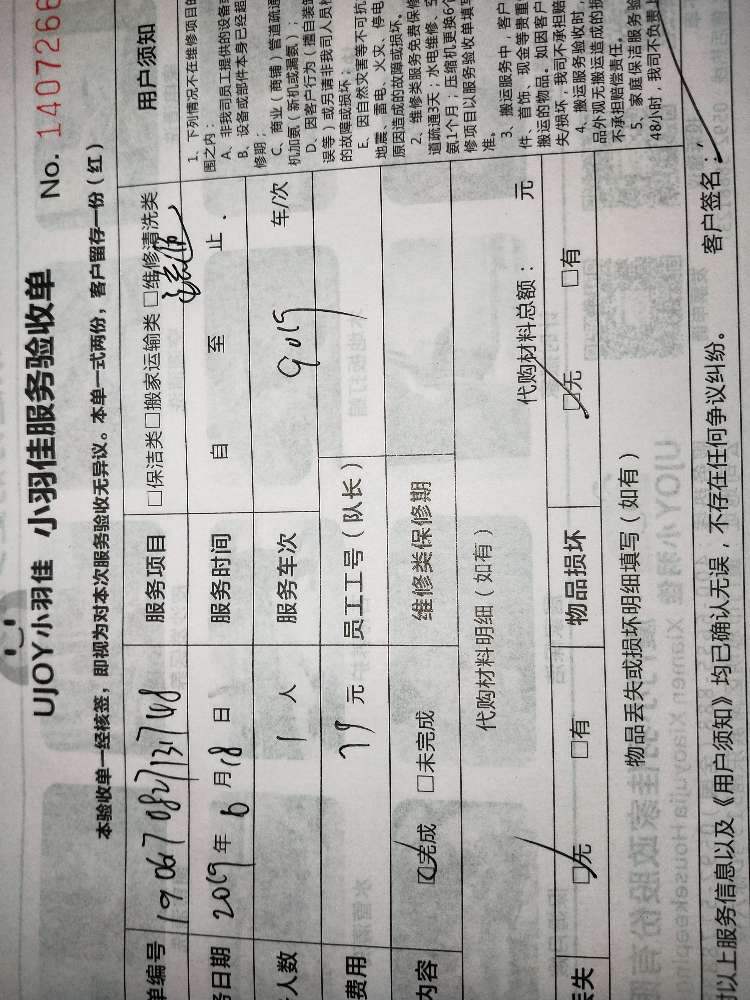 UJOY小羽佳 小羽佳服务验收单 No. 1407266
本验收单一经核签，即视为对本次服务验收无异议。本单一式两份，客户留存一份（红）
单编号 服务项目 □保洁类□搬家运输类 □维修清洗类 用户须知
务日期 2019年6月18日 服务时间 自 至 止
人数 1 人 服务车次 车/次
费用 79 元 员工工号（队长） 9019
内容 ☑完成 □未完成 维修类保修期
代购材料明细（如有） 代购材料总额： 元
丢失 ☑无 □有 物品损坏 ☑无 □有
物品丢失或损坏明细填写（如有）
1、下列情况不在维修项目的
围之内：
A、非我司员工提供的设备或
B、设备或部件本身已经超
修期；
C、商业（商铺）管道疏通
机加氨（新机或漏氨）；
D、因客户行为（擅自装卸
误等）或另请非我司人员
的故障或损坏；
E、因自然灾害等不可抗
地震、雷电、火灾、停电
原因造成的故障或损坏。
2、维修类服务免费保修
道疏通3天；水电维修、空
氨1个月；压缩机更换6个
修项目以服务验收单填写
准。
3、搬运服务中，客户
件、首饰、现金等贵重
搬运的物品，如因客户
失/损坏，我司不承担赔
4、搬运服务验收时，
品外观无搬运造成的损
不承担赔偿责任。
5、家庭保洁服务验
48小时，我司不负责
对以上服务信息以及《用户须知》均已确认无误，不存在任何争议纠纷。 客户签名：